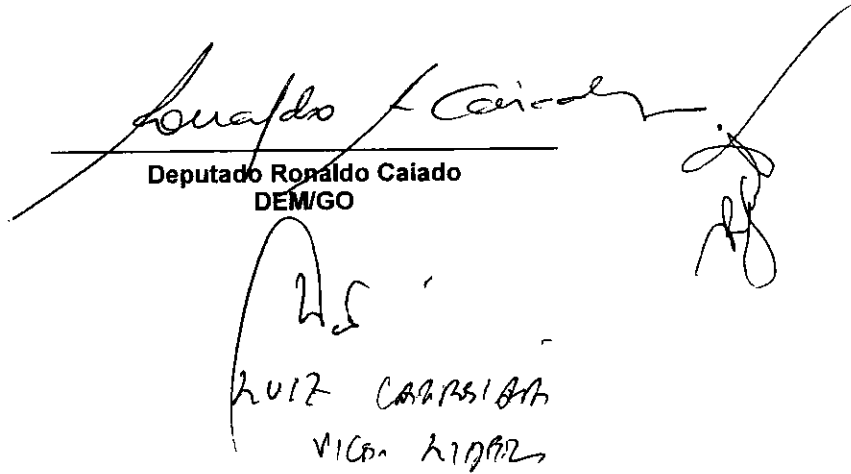 Ronaldo Caiado
Deputado Ronaldo Caiado
DEM/GO
LUIZ
VICE LIDER